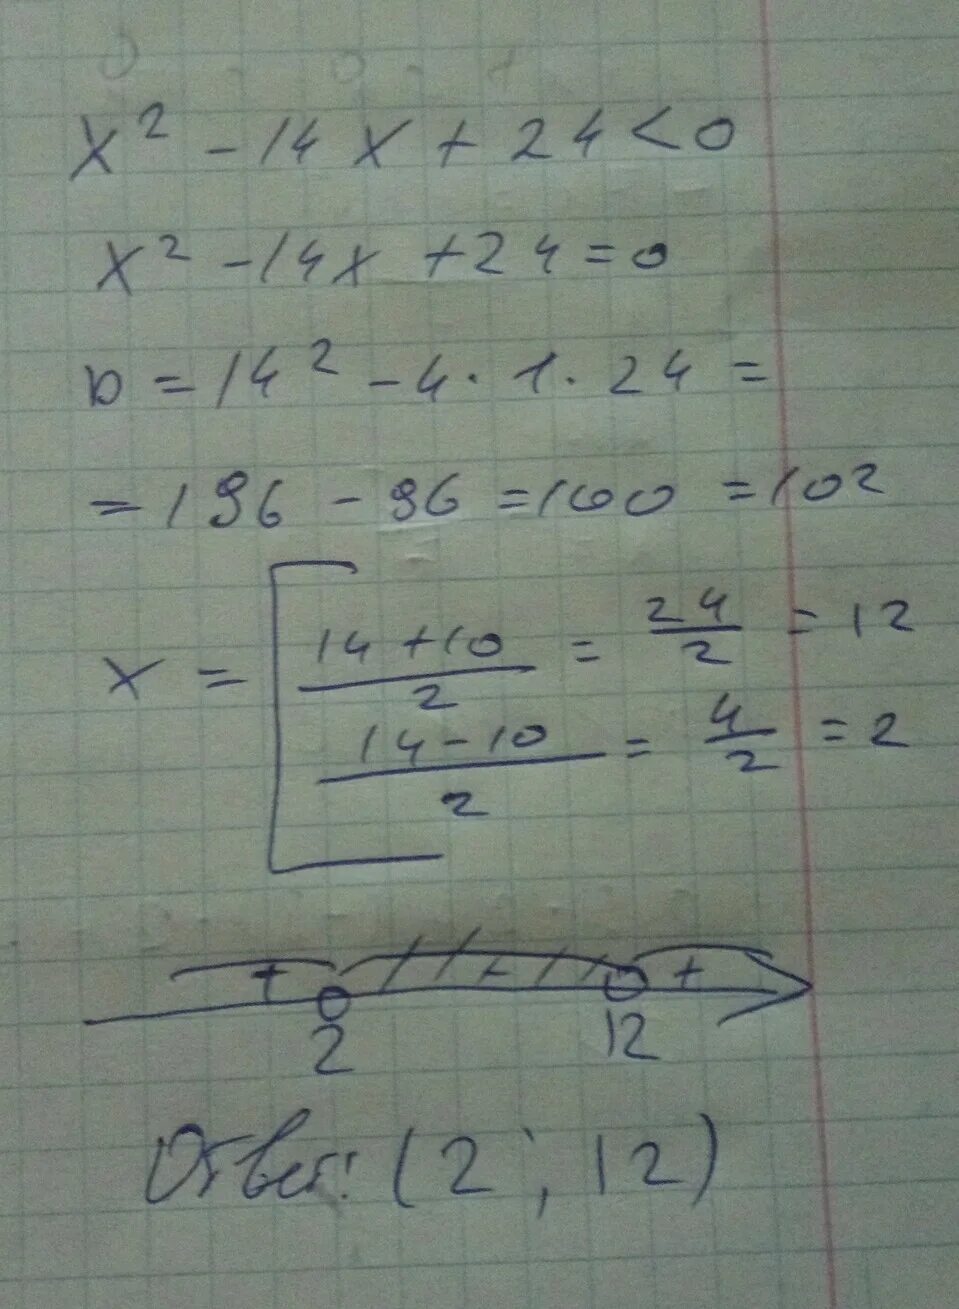 x² - 14x + 24 < 0
x² - 14x + 24 = 0
D = 14² - 4 · 1 · 24 =
= 196 - 96 = 100 = 10²
x = [ (14 + 10)/2 = 24/2 = 12
(14 - 10)/2 = 4/2 = 2
+ - +
2 12
Ответ: (2 ; 12)